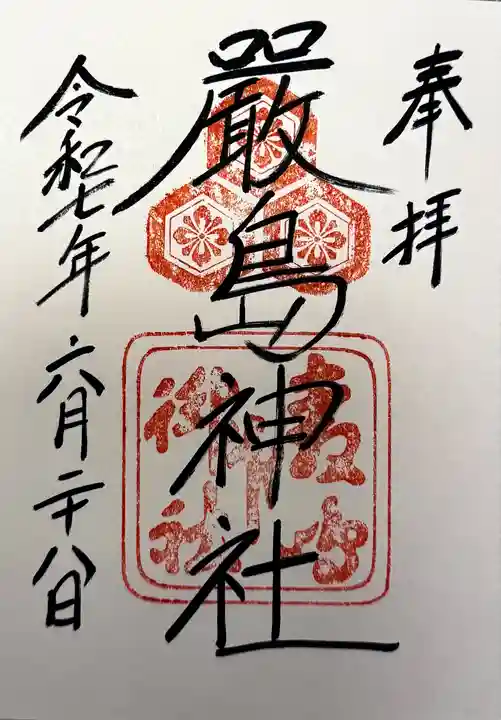 奉拝
嚴島神社
令和七年六月二十八日